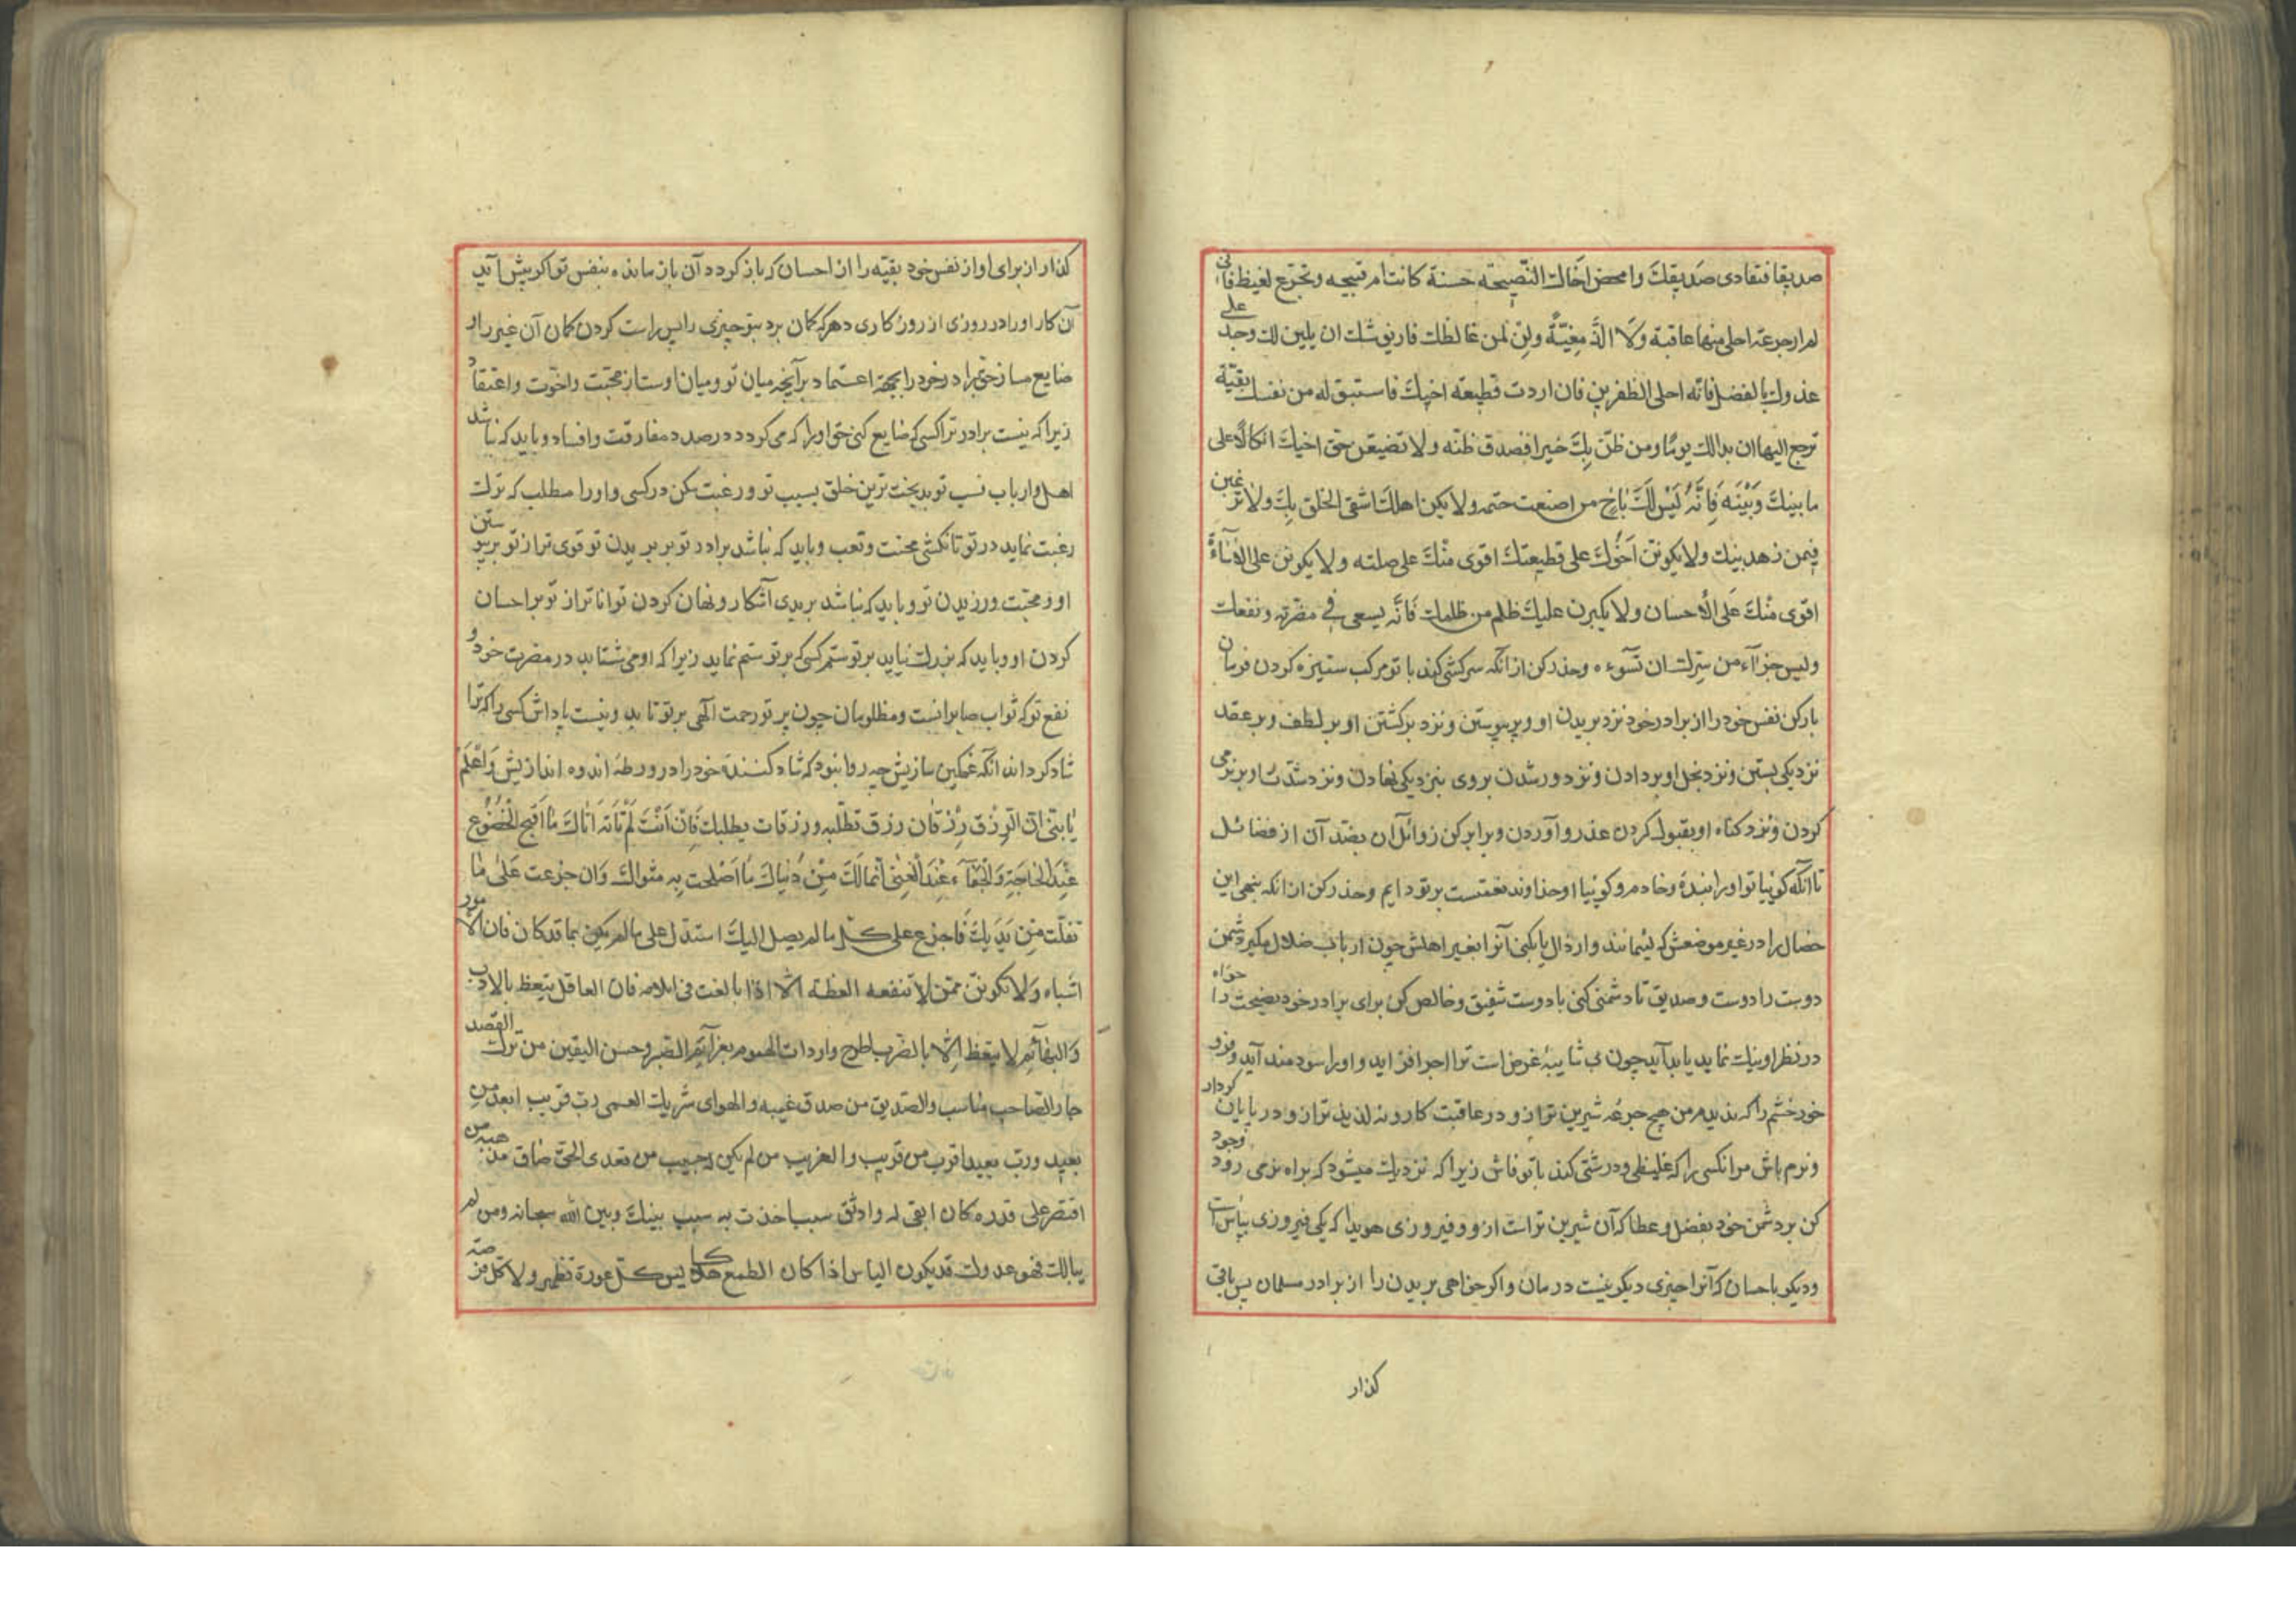 صديقا فتعادى صديقك وامحض اخاك النّصيحته حسنة كانت ام قبيحه وتجرّع لغيظ فانى
لم ار جرعة احلى منها عاقبة ولا الذّ مغبّةً ولِن لمن غالظك فاريق شك ان يلين لك وجد على
عدوك بالفضل فانّه احلى الظفرين فان اردت قطيعته اخيك فاستبق له من نفسك بقيّة
ترجع اليها ان بدالك يومًا ومن ظنّ بك خيرا فصدق ظنّه ولا تضيعن حق اخيك اتكالًا على
ما بينك وبَيْنَه فَاِنَّهُ لَيْسَ لَكَ بَاخٍ من اضعت حقه ولا يكن اهلك اشقى الخلق بك ولا ترغبن
فيمن زهد بينك ولا يكونن اَخُوكَ على قطيعتك اقوى منْكَ على صلته ولا يكونن على الاساءَة
اقوى منْكَ عَلَى الْاحسان ولا يكبرن عليك ظلم من ظلمك فَانَّه يسعى فى مضرّته ونفعك
وليس جزآء من سرّك ان تسوءه وحذر كن از آنكه سركشى كند با تو مركب ستيزه كردن فرمان
بار كن نفس خود را از برادر خود نزد بريدن او و بر پيوستن و نزد برگشتن او بر لطف و بر عقد
نزديكى بستن و نزد بخل او بر دادن و نزد دور شدن بر وى بنزديكى نهادن و نزد شدّت او بر نرمى
كردن و نزد گناه او بقبول كردن عذر و آوردن و برابر كن زوائل آن بضد آن از فضائل
تا آنكه گوئيا تو او را بندهٔ و خادم و گوئيا او خداوند نعمتست بر تو دايم و حذر كن از انكه بنهى اين
خصال را در غير موضعش كه لئمانند و ارذال يا بكنى آنرا بغير اهلش چون ارباب ضلال مگير دشمن
دوست را دوست و صديق تا دشمنى كنى با دوست شفيق و خالص كن براى برادر خود نصيحت را خواه
در نظر او نيك نمايد يا بد آيد چون بى شايبهٔ غرض است ترا اجر افزايد و او را سودمند آيد و فرو
خور خشم را كه نديدم من هيچ جرعه شيرين تر از و در عاقبت كار و نه لذيذ تر از و در پايان كردار
و نرم باش مر انكسى را كه غليظى و درشتى كند با تو فاش زيرا كه نزديك ميشود كه براه نرمى رود وجود
كن بر دشمن خود بفضل و عطا كه آن شيرين تر است از دو فيروزى هويدا كه يكى فيروزى بباس است
و ديگر باحسان كه آنرا چيزى ديگر نيست درمان و اگر خواهى بريدن را از برادر مسلمان پس باقى
گذار
گذار از براى او از نفس خود بقيّه را از احسان كه باز گردد آن باز مانده بنفس تو اگر پيش آيد
آن كار او را در روزى از روزگارى و هر كه گمان برد بتو چيزى را پس راست كردن گمان آن غير را و
ضايع مساز حق برادر خود را بجهة اعتماد بر آنچه ميان تو و ميان اوست از محبّت و اخوّت و اعتقاد
زيرا كه نيست برادر ترا كسى كه ضايع كنى حق او را كه مى گردد در صدد مفارقت و افساد و بايد كه نباشد
اهل و ارباب نسب تو بدبخت ترين خلق بسبب تو و رغبت مكن در كسى و او را مطلب كه ترك
رغبت نمايد در تو تا نكشى محنت و تعب و بايد كه نباشد برادر تو بر بريدن تو قوى تر از تو بر پيوستن
او و محبّت ورزيدن تو و بايد كه نباشد بر بدى آشكار و نهان كردن توانا تر از تو بر احسان
كردن او و بايد كه بزرك نيايد بر تو ستم كسى كه بر تو ستم نمايد زيرا كه او مى شتابد در مضرت خود و
نفع تو كه ثواب صابرانست و مظلومان چون پرتو رحمت الهى بر تو تابد و نيست پاداش كسى را كه ترا
شاد گرداند آنكه غمگين سازيش چه روا نبود كه شاد كنندهٔ خود را در ورطهٔ اندوه اندازيش وَاعْلَم
يا بنىّ انّ الرزق رِزْقان رزق تطلبه ورزقات يطلبك فَاِن اَنْتَ لَمْ تَاْتَه اَتاكَ مٰا اَقبح الْخضُوع
عِنْدَ الْحَاجَةِ وَالْجَفَآءَ عِنْدَ الْغِنٰى انّما لَكَ مِنْ دُنياكَ مٰا اَصْلحت به مثواك وَان جزعت عَلٰى مٰا
تفلّت مِن يَدَيك فَاجزع على كل ما لم يصل اليك استدل على ما لم يكن بما قد كان فان الامور
اشباه وَلا تكوننّ ممّن لا تنفعه العظة الّا اذا بالغت فى ايلامه فان العاقل يتعظ بالادب
وَالبهآئم لا يتعظ اِلّا بالضرب اطرح واردات الهموم بعزآئم الصّبر وحسن اليقين من ترك القصد
جار الصّاحب مناسب والصّديق من صدق غيبه والهواى شريك العمى ربّ قريب ابعد من
بعيد وربّ بعيد اقرب من قريب والغريب من لم يكن له حبيب من تعدى الحقّ ضاق مذهبه من
اقتصر على قدره كان ابقى له واوثق سبب اخذت به سبب بينك وبين الله سبحانه ومن لم
يبالك فهو عدوك قد يكون الياس اذا كان الطمع هلاكا ليس كل عورة تظهر ولا كل فرصة